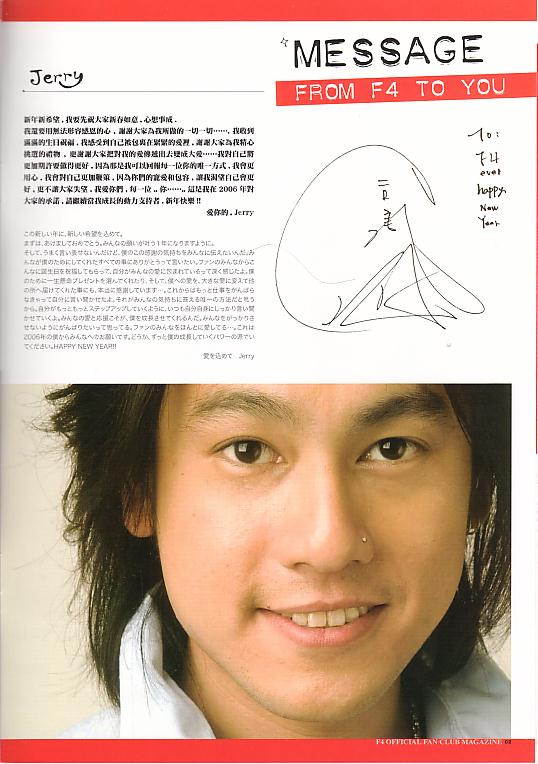 Jerry
MESSAGE
FROM F4 TO YOU
新年新希望，我要先祝大家新春如意，心想事成。
我還要用無法形容感恩的心，謝謝大家為我所做的一切一切……，我收到
滿滿的生日祝福，我感受到自己被包裹在緊緊的愛裡，謝謝大家為我精心
挑選的禮物，更謝謝大家把對我的愛傳遞出去變成大愛……我對自己將
更加期許要做得更好，因為那是我可以回報每一位你的唯一方式，我會更
用心，我會對自己更加鞭策，因為你們的寵愛和包容，讓我渴望自己會更
好，更不讓大家失望，我愛你們，每一位。你……。這是我在2006年對
大家的承諾，請繼續當我成長的動力支持者，新年快樂!!
愛你的，Jerry
この新しい年に、新しい希望を込めて。
まずは、あけましておめでとう。みんなの願いが叶う1年になりますように。
そして、うまく言い表せないんだけど、僕のこの感謝の気持ちをみんなに伝えたいんだ。み
んなが僕のためにしてくれたすべての事にありがとうって言いたい。ファンのみんなからこ
んなに誕生日を祝福してもらって、自分がみんなの愛に包まれているって深く感じたよ。僕
のために一生懸命プレゼントを選んでくれたり、そして、僕への愛を、大きな愛に変えて他
の所へ届けてくれた事にも、本当に感謝しています…。これからはもっと仕事をがんばら
なきゃって自分に言い聞かせてたよ。それがみんなの気持ちに答える唯一の方法だと思う
から。自分がもっともっとステップアップしていくように、いつも自分自身にしっかり言い聞
かせていくよ。みんなの愛と応援こそが、僕を成長させてくれるんだ。みんなをがっかりさ
せないようにがんばりたいって思ってる。ファンのみんなをほんとに愛してる…。これは
2006年の僕からみんなへのお願いです。どうか、ずっと僕の成長していくパワーの源でい
てください。HAPPY NEW YEAR!!!
愛を込めて　Jerry
To:
F4
ever
happy
New
Year
F4 OFFICIAL FAN CLUB MAGAZINE 02